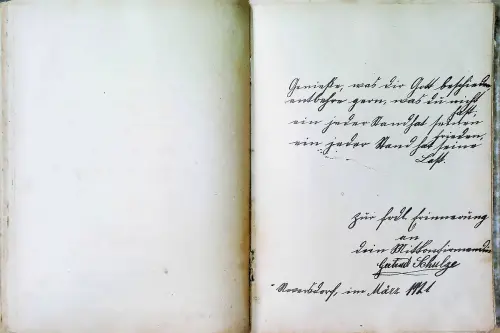 Genieße, was dir Gott beschieden
entbehre gern, was du nicht
hast,
ein jeder Stand hat seinen
Frieden,
ein jeder Stand hat seine
Last.
Zur frdl. Erinnerung
an
dein Mitkonfirmandin
Gertrud Schulze
im März 1921